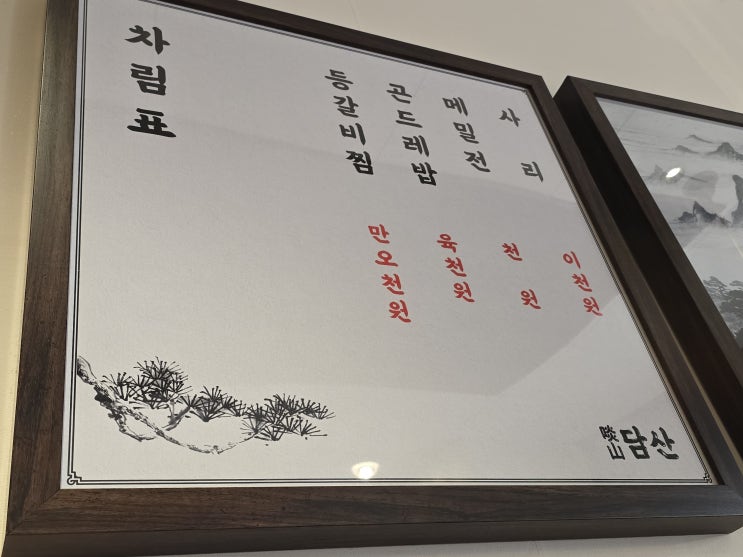 차림표
등갈비찜 만오천원
곤드레밥 육천원
메밀전 천 원
사 리 이천원
啖山 담산